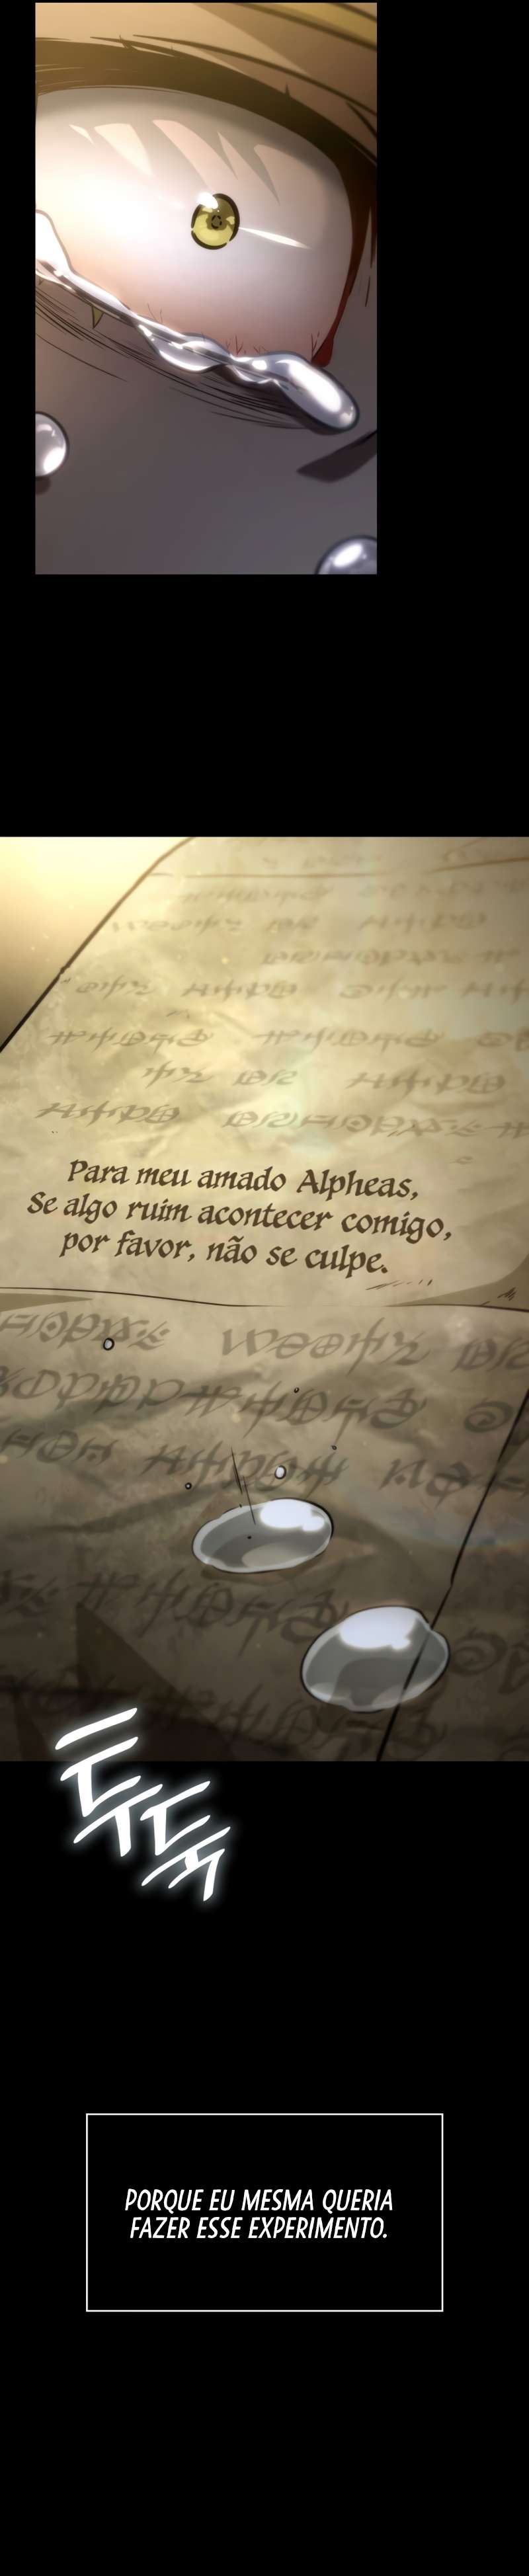 Para meu amado Alpheas,
Se algo ruim acontecer comigo,
por favor, não se culpe.
투둑
PORQUE EU MESMA QUERIA
FAZER ESSE EXPERIMENTO.